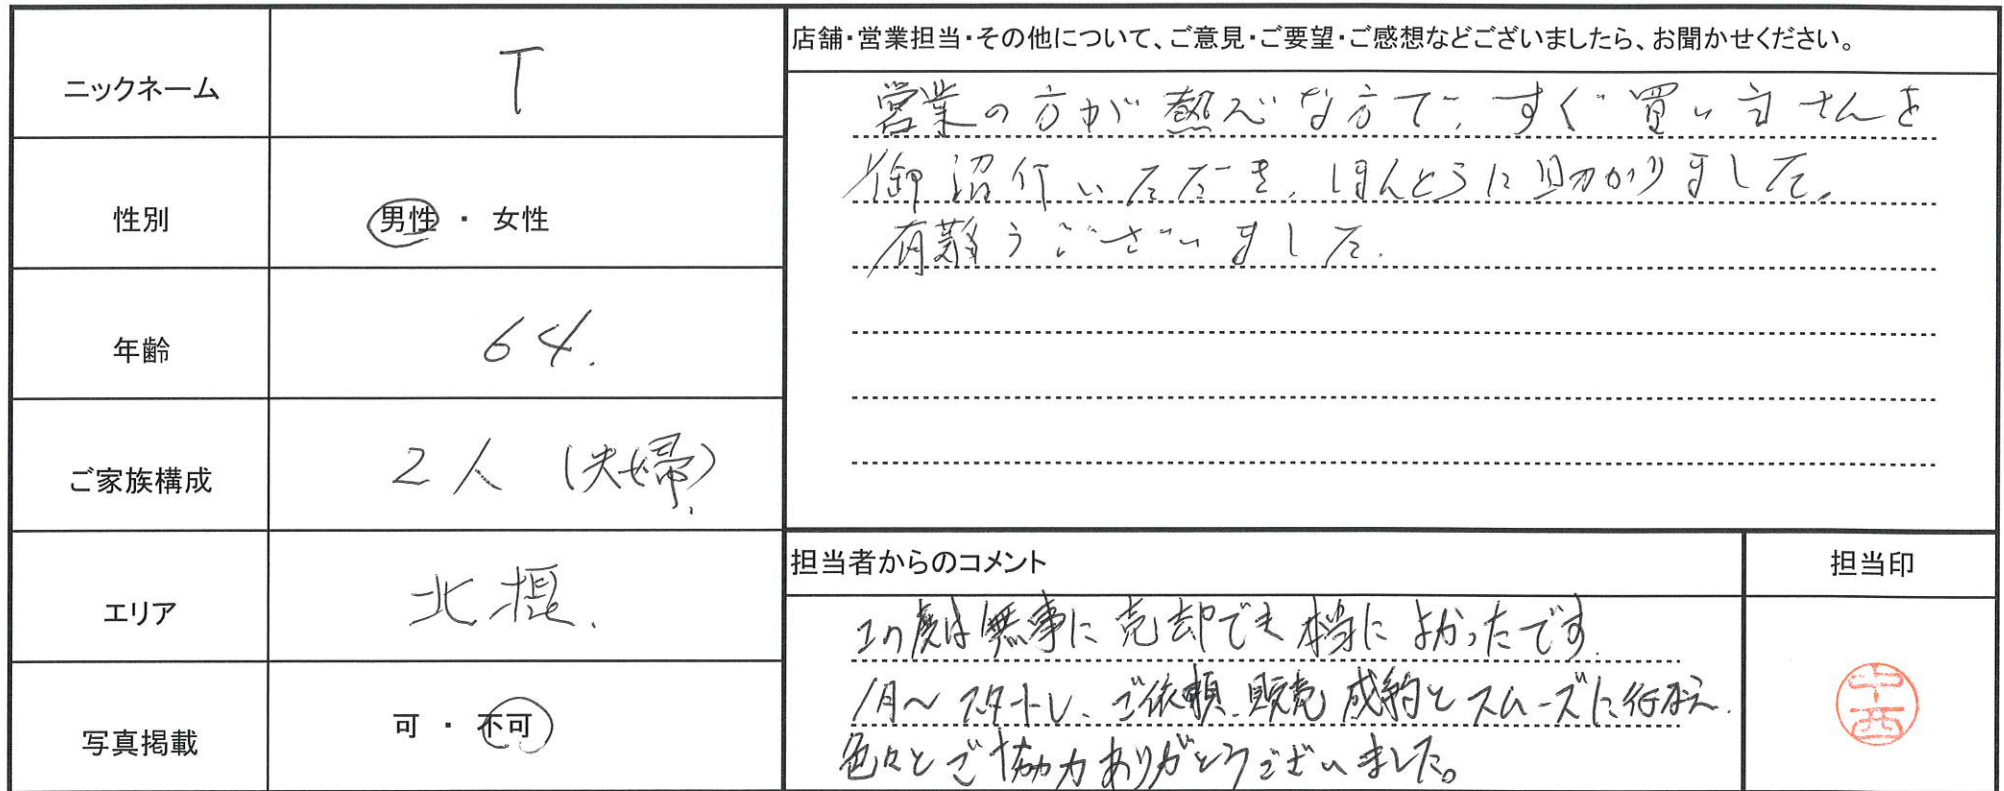 ニックネーム
T
性別
男性 ・ 女性
年齢
64.
ご家族構成
2人 (夫婦)
エリア
北摂.
写真掲載
可 ・ 不可
店舗・営業担当・その他について、ご意見・ご要望・ご感想などございましたら、お聞かせください。
営業の方が熱心な方で、すぐ買い主さんを
御紹介いただき、ほんとうに助かりました。
有難うございました.
担当者からのコメント
この度は無事に売却でき本当によかったです.
1月〜スタートし、ご依頼、販売、成約とスムーズに行なえ.
色々とご協力ありがとうございました。
担当印